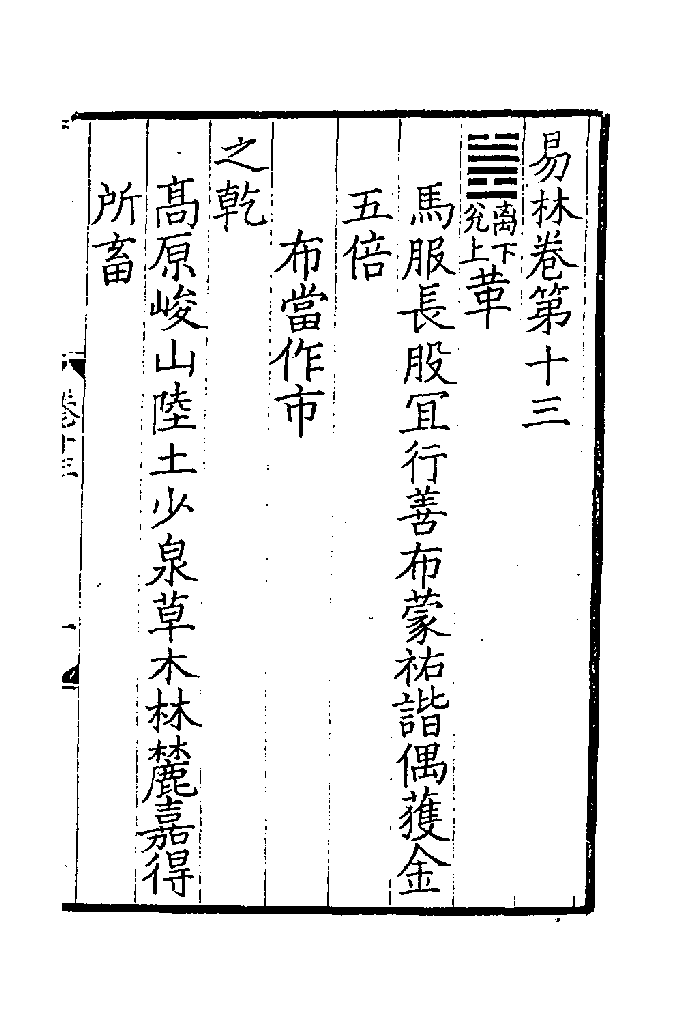 易林卷第十三
離下兌上革
馬服長股冝行善布蒙祐諧偶獲金
五倍
布當作市
之乾
髙原峻山陸土少泉草木林麓嘉得
所畜
卷十三
一